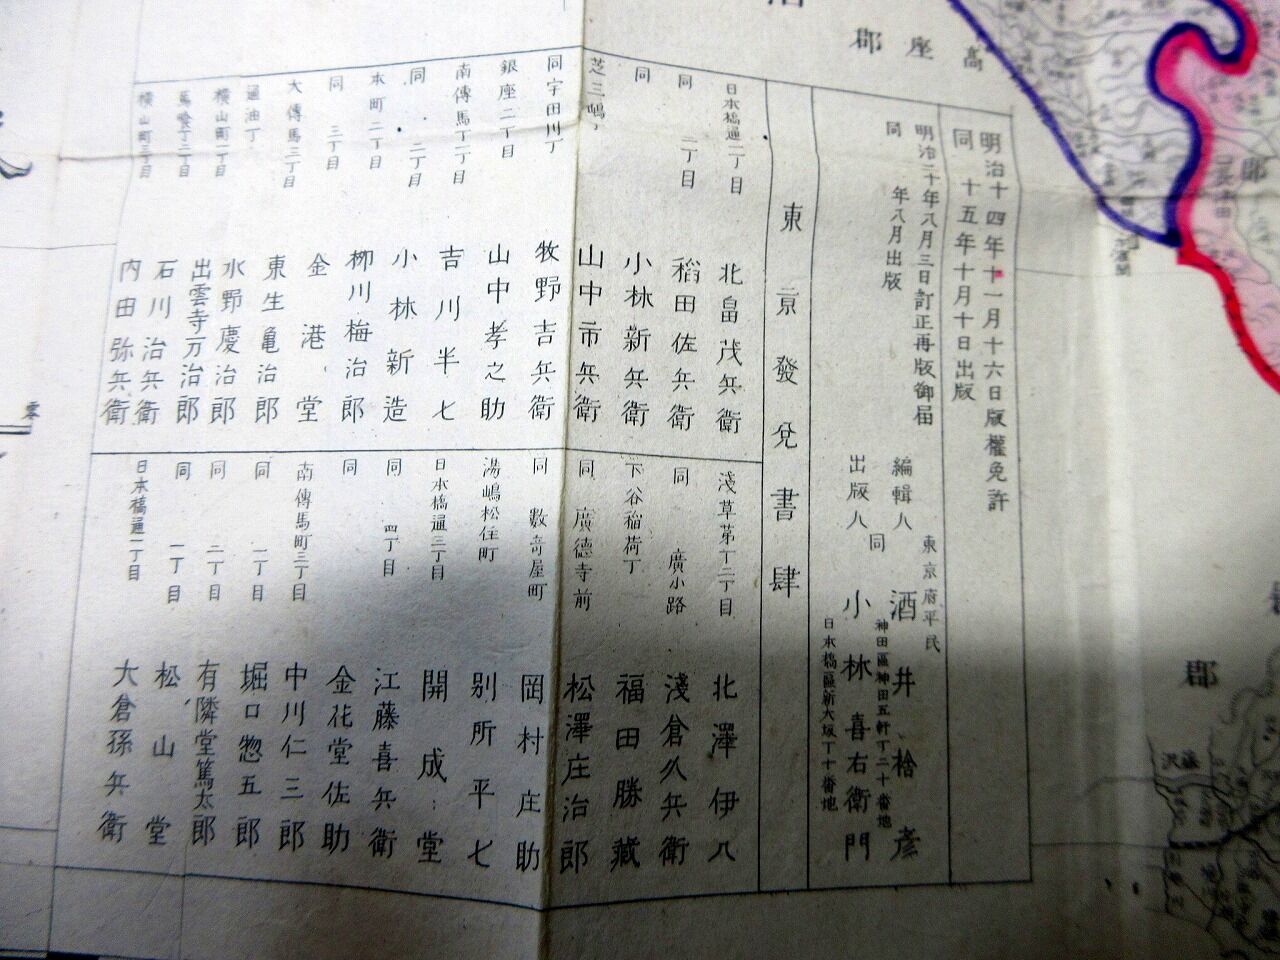 明治十四年十一月十六日版權免許
同 十五年十月十日出版
明治二十年八月三日訂正再版御届
同 年八月出版
編輯人 東京府平民 酒井捨彦 神田區神田五軒丁二十番地
出版人 同 小林喜右衛門 日本橋區新大坂丁十番地
東京發兌書肆
日本橋通一丁目 北畠茂兵衛
同 二丁目 稲田佐兵衛
同 小林新兵衛
芝三嶋丁 山中市兵衛
同宇田川丁 牧野吉兵衛
銀座二丁目 山中孝之助
南傳馬丁一丁目 吉川半七
同 二丁目 小林新造
本町二丁目 柳川梅治郎
同 三丁目 金港堂
大傳馬二丁目 東生亀治郎
通油丁 水野慶治郎
横山町一丁目 出雲寺万治郎
馬喰丁二丁目 石川治兵衛
横山町三丁目 内田弥兵衛
淺草茅丁二丁目 北澤伊八
同 廣小路 淺倉久兵衛
下谷稲荷丁 福田勝藏
同 廣徳寺前 松澤庄治郎
同 數寄屋町 岡村庄助
湯嶋松住町 別所平七
日本橋通三丁目 開成堂
同 四丁目 江藤喜兵衛
同 金花堂佐助
南傳馬町三丁目 中川仁三郎
同 二丁目 堀口惣五郎
同 二丁目 有隣堂篤太郎
同 一丁目 松山堂
日本橋通一丁目 大倉孫兵衛
高座郡
郡
郡
藤沢